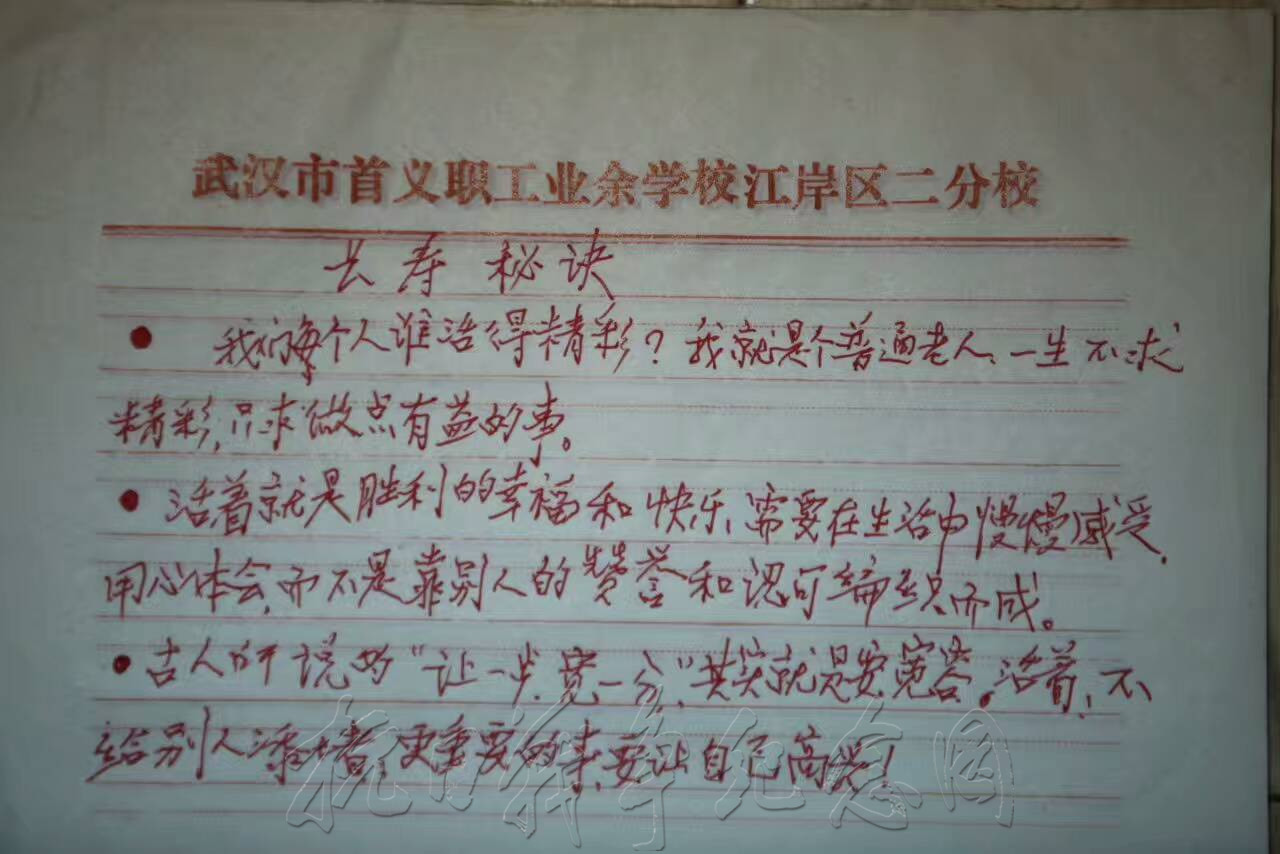 武汉市首义职工业余学校江岸区二分校
长寿秘诀
● 我们每个人谁活得精彩？我就是个普通老人、一生不求
精彩,只求做点有益的事。
● 活着就是胜利的幸福和快乐、需要在生活中慢慢感受.
用心体会,而不是靠别人的赞誉和认可编织而成。
● 古人所说的“让一步.宽一分”其实就是要宽容。活着、不
给别人添堵,更重要的事.要让自己高兴!
抗日将军纪念网